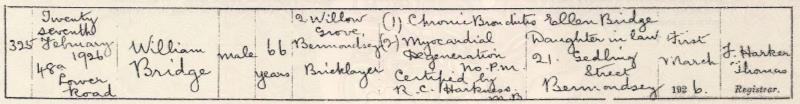 325
Twenty
seventh
February
1926
48a
Lower
Road
William
Bridge
Male
66
years
2 Willow
Grove,
Bermondsey
Bricklayer
(1) Chronic Bronchitis
(2) Myocardial
Degeneration
No P.M.
Certified by
R. C. Harkness
M.B.
Ellen Bridge
Daughter in law
21. Gedling
Street
Bermondsey
First
March
1926.
J. Harker
Thomas
Registrar.